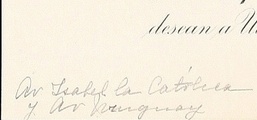 desean a U
Av Isabel la Católica
y Av Uruguay